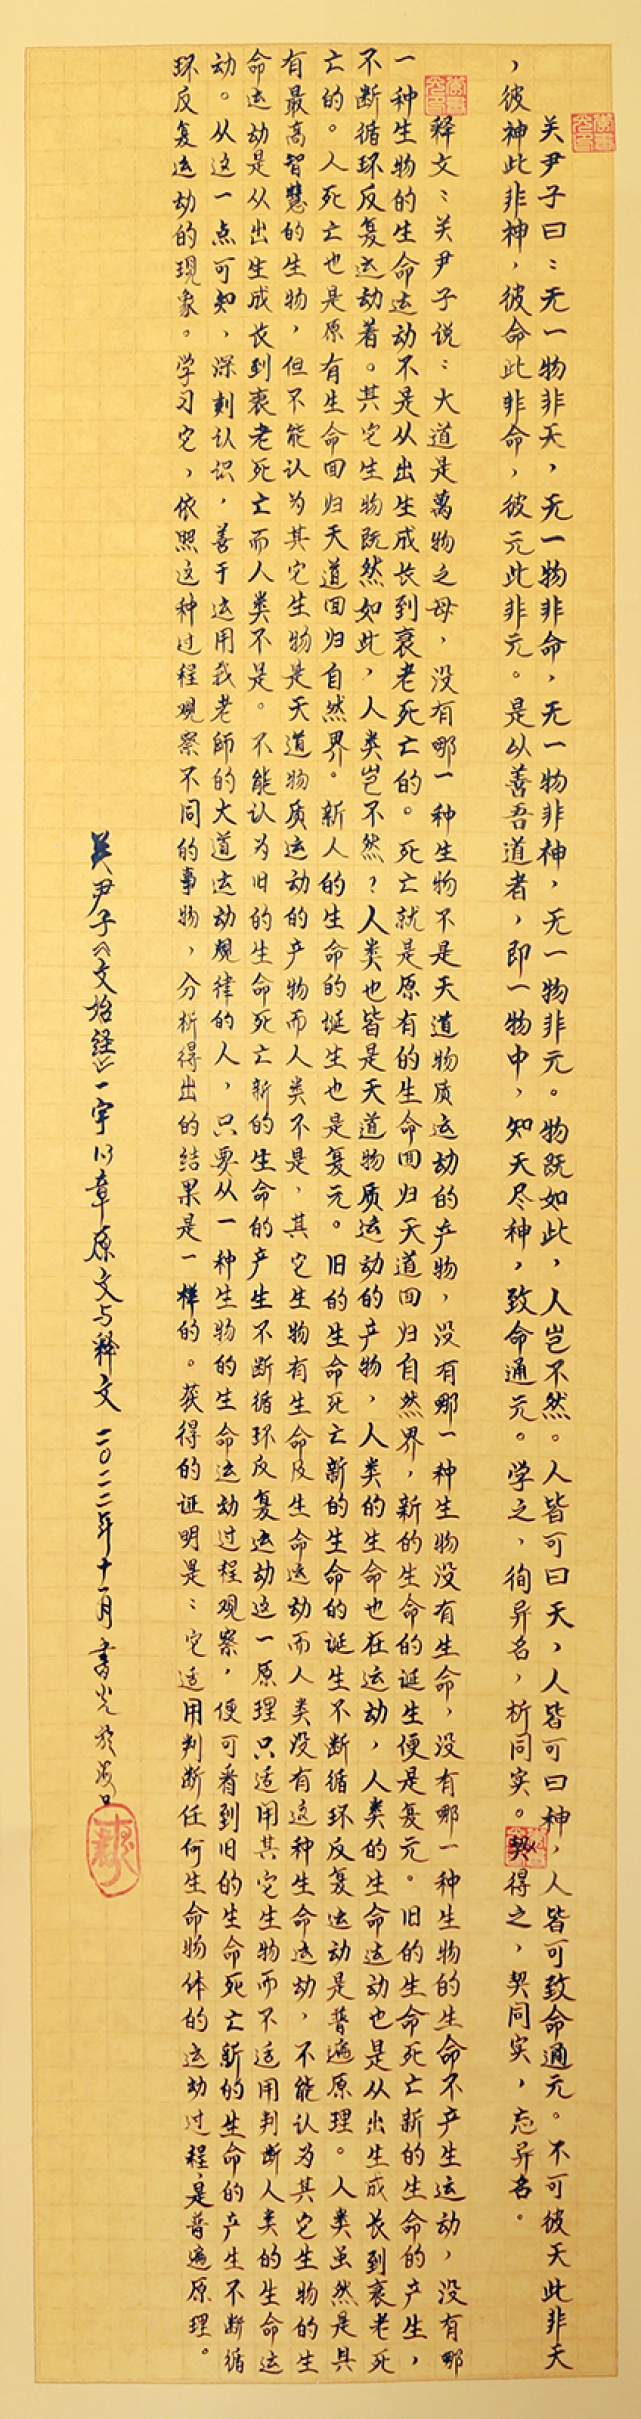 关尹子曰：无一物非天，无一物非命，无一物非神，无一物非元。物既如此，人岂不然。人皆可曰天，人皆可曰神，人皆可致命通元。不可彼天此非天
，彼神此非神，彼命此非命，彼元此非元。是以善吾道者，即一物中，知天尽神，致命通元。学之，徇异名，析同实。契得之，契同实，忘异名。
释文：关尹子说：大道是萬物之母，没有哪一种生物不是天道物质运动的产物，没有哪一种生物没有生命，没有哪一种生物的生命不产生运动，没有哪
一种生物的生命运动不是从出生成长到衰老死亡的。死亡就是原有的生命回归天道回归自然界，新的生命的诞生便是复元。旧的生命死亡新的生命的产生，
不断循环反复运动着。其它生物既然如此，人类岂不然？人类也皆是天道物质运动的产物，人类的生命也在运动，人类的生命运动也是从出生成长到衰老死
亡的。人死亡也是原有生命回归天道回归自然界。新人的生命的诞生也是复元。旧的生命死亡新的生命的诞生不断循环反复运动是普遍原理。人类虽然是具
有最高智慧的生物，但不能认为其它生物是天道物质运动的产物而人类不是，其它生物有生命及生命运动而人类没有这种生命运动，不能认为其它生物的生
命运动是从出生成长到衰老死亡而人类不是。不能认为旧的生命死亡新的生命的产生不断循环反复运动这一原理只适用其它生物而不适用判断人类的生命运
动。从这一点可知，深刻认识，善于运用我老師的大道运动规律的人，只要从一种生物的生命运动过程观察，便可看到旧的生命死亡新的生命的产生不断循
环反复运动的現象。学习它，依照这种过程观察不同的事物，分析得出的结果是一样的。获得的证明是：它适用判断任何生命物体的运动过程，是普遍原理。
关尹子《文始经》一宇13章原文与释文 二〇二二年十一月 書光於海口